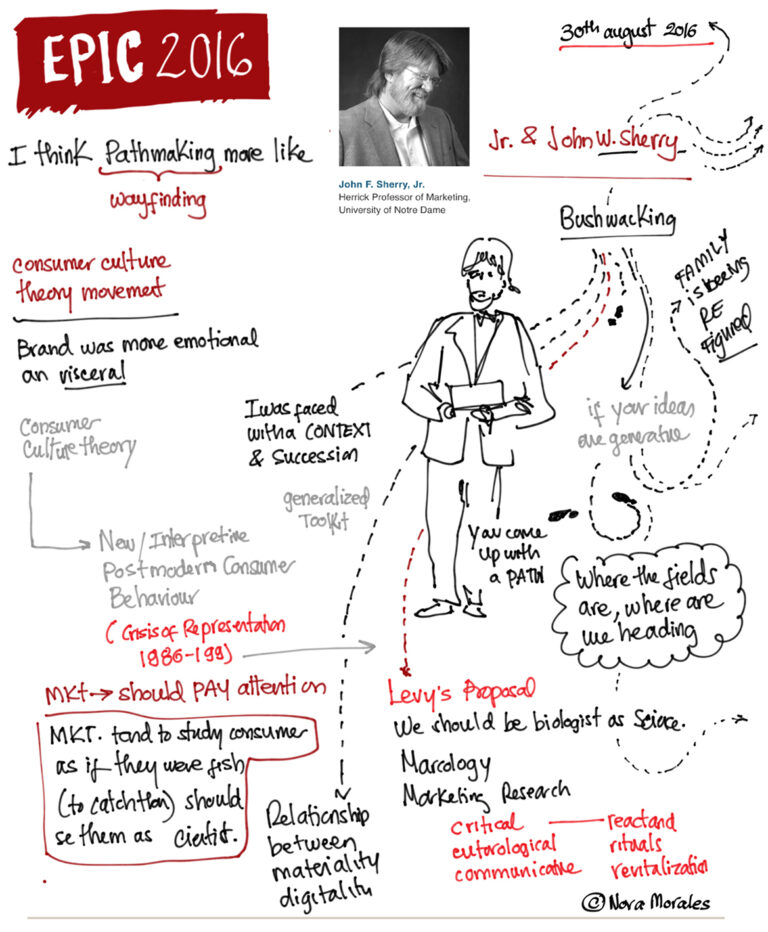 EPIC 2016
30th august 2016
Jr. & John W. Sherry
John F. Sherry, Jr.
Herrick Professor of Marketing,
University of Notre Dame
I think Pathmaking more like
wayfinding
Bushwacking
FAMILY
is being
RE
figured
consumer culture
theory movement
Brand was more emotional
an visceral
Consumer
Culture theory
I was faced
with a CONTEXT
& Succession
generalized
Toolkit
if your ideas
are generative
You come
up with
a PATH
New/Interpretive
Postmodern Consumer
Behaviour
(Crisis of Representation
1986-199)
Where the fields
are, where are
we heading
MKt→ should PAY attention
MKT. tend to study consumer
as if they were fish
(to catch) should
se them as
Levy's Proposal
We should be biologist as Science.
Marcology
Marketing Research
critical
communicative
rituals
revitalization
Relationship
between
materiality
digitality
© Nora Morales